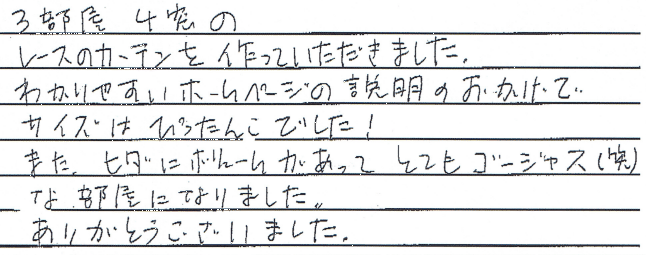 3部屋 4窓の
レースのカーテンを作っていただきました。
わかりやすいホームページの説明のおかげで
サイズはぴったんこでした!
また、ヒダにボリュームがあってとてもゴージャス(笑)
な部屋になりました。
ありがとうございました。